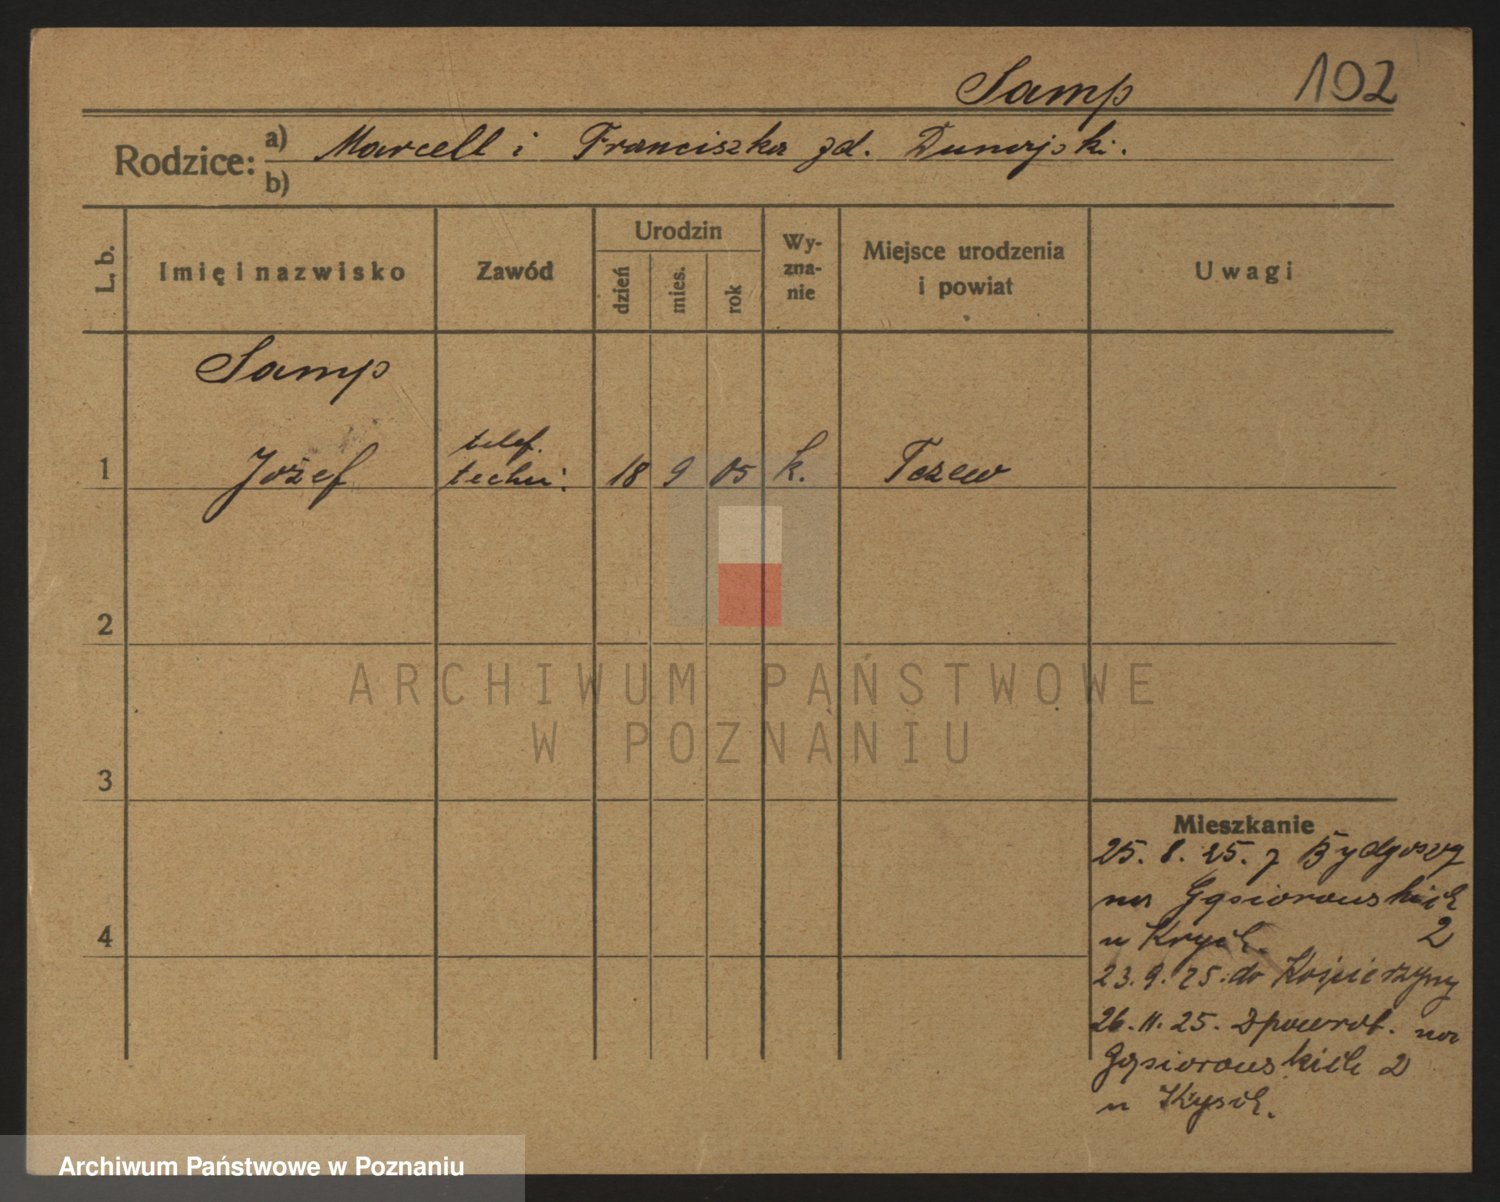 Samp 102
Rodzice: a) Marcell i Franciszka zd. Dunajski.
b)
L. b. Imię i nazwisko Zawód Urodzin dzień mies. rok Wy-zna-nie Miejsce urodzenia i powiat Uwagi
Samp
telef.
1 Józef techn. 18 9 05 k. Tczew
2
ARCHIWUM PAŃSTWOWE
W POZNANIU
3
Mieszkanie
25. 8. 25. z Bydgoszcz
na Gąsiorowskich
4 u 2
23. 9. 25. do Kościerzyny
26. 11. 25. Zpowrot. na
Gąsiorowskich 2
u
Archiwum Państwowe w Poznaniu